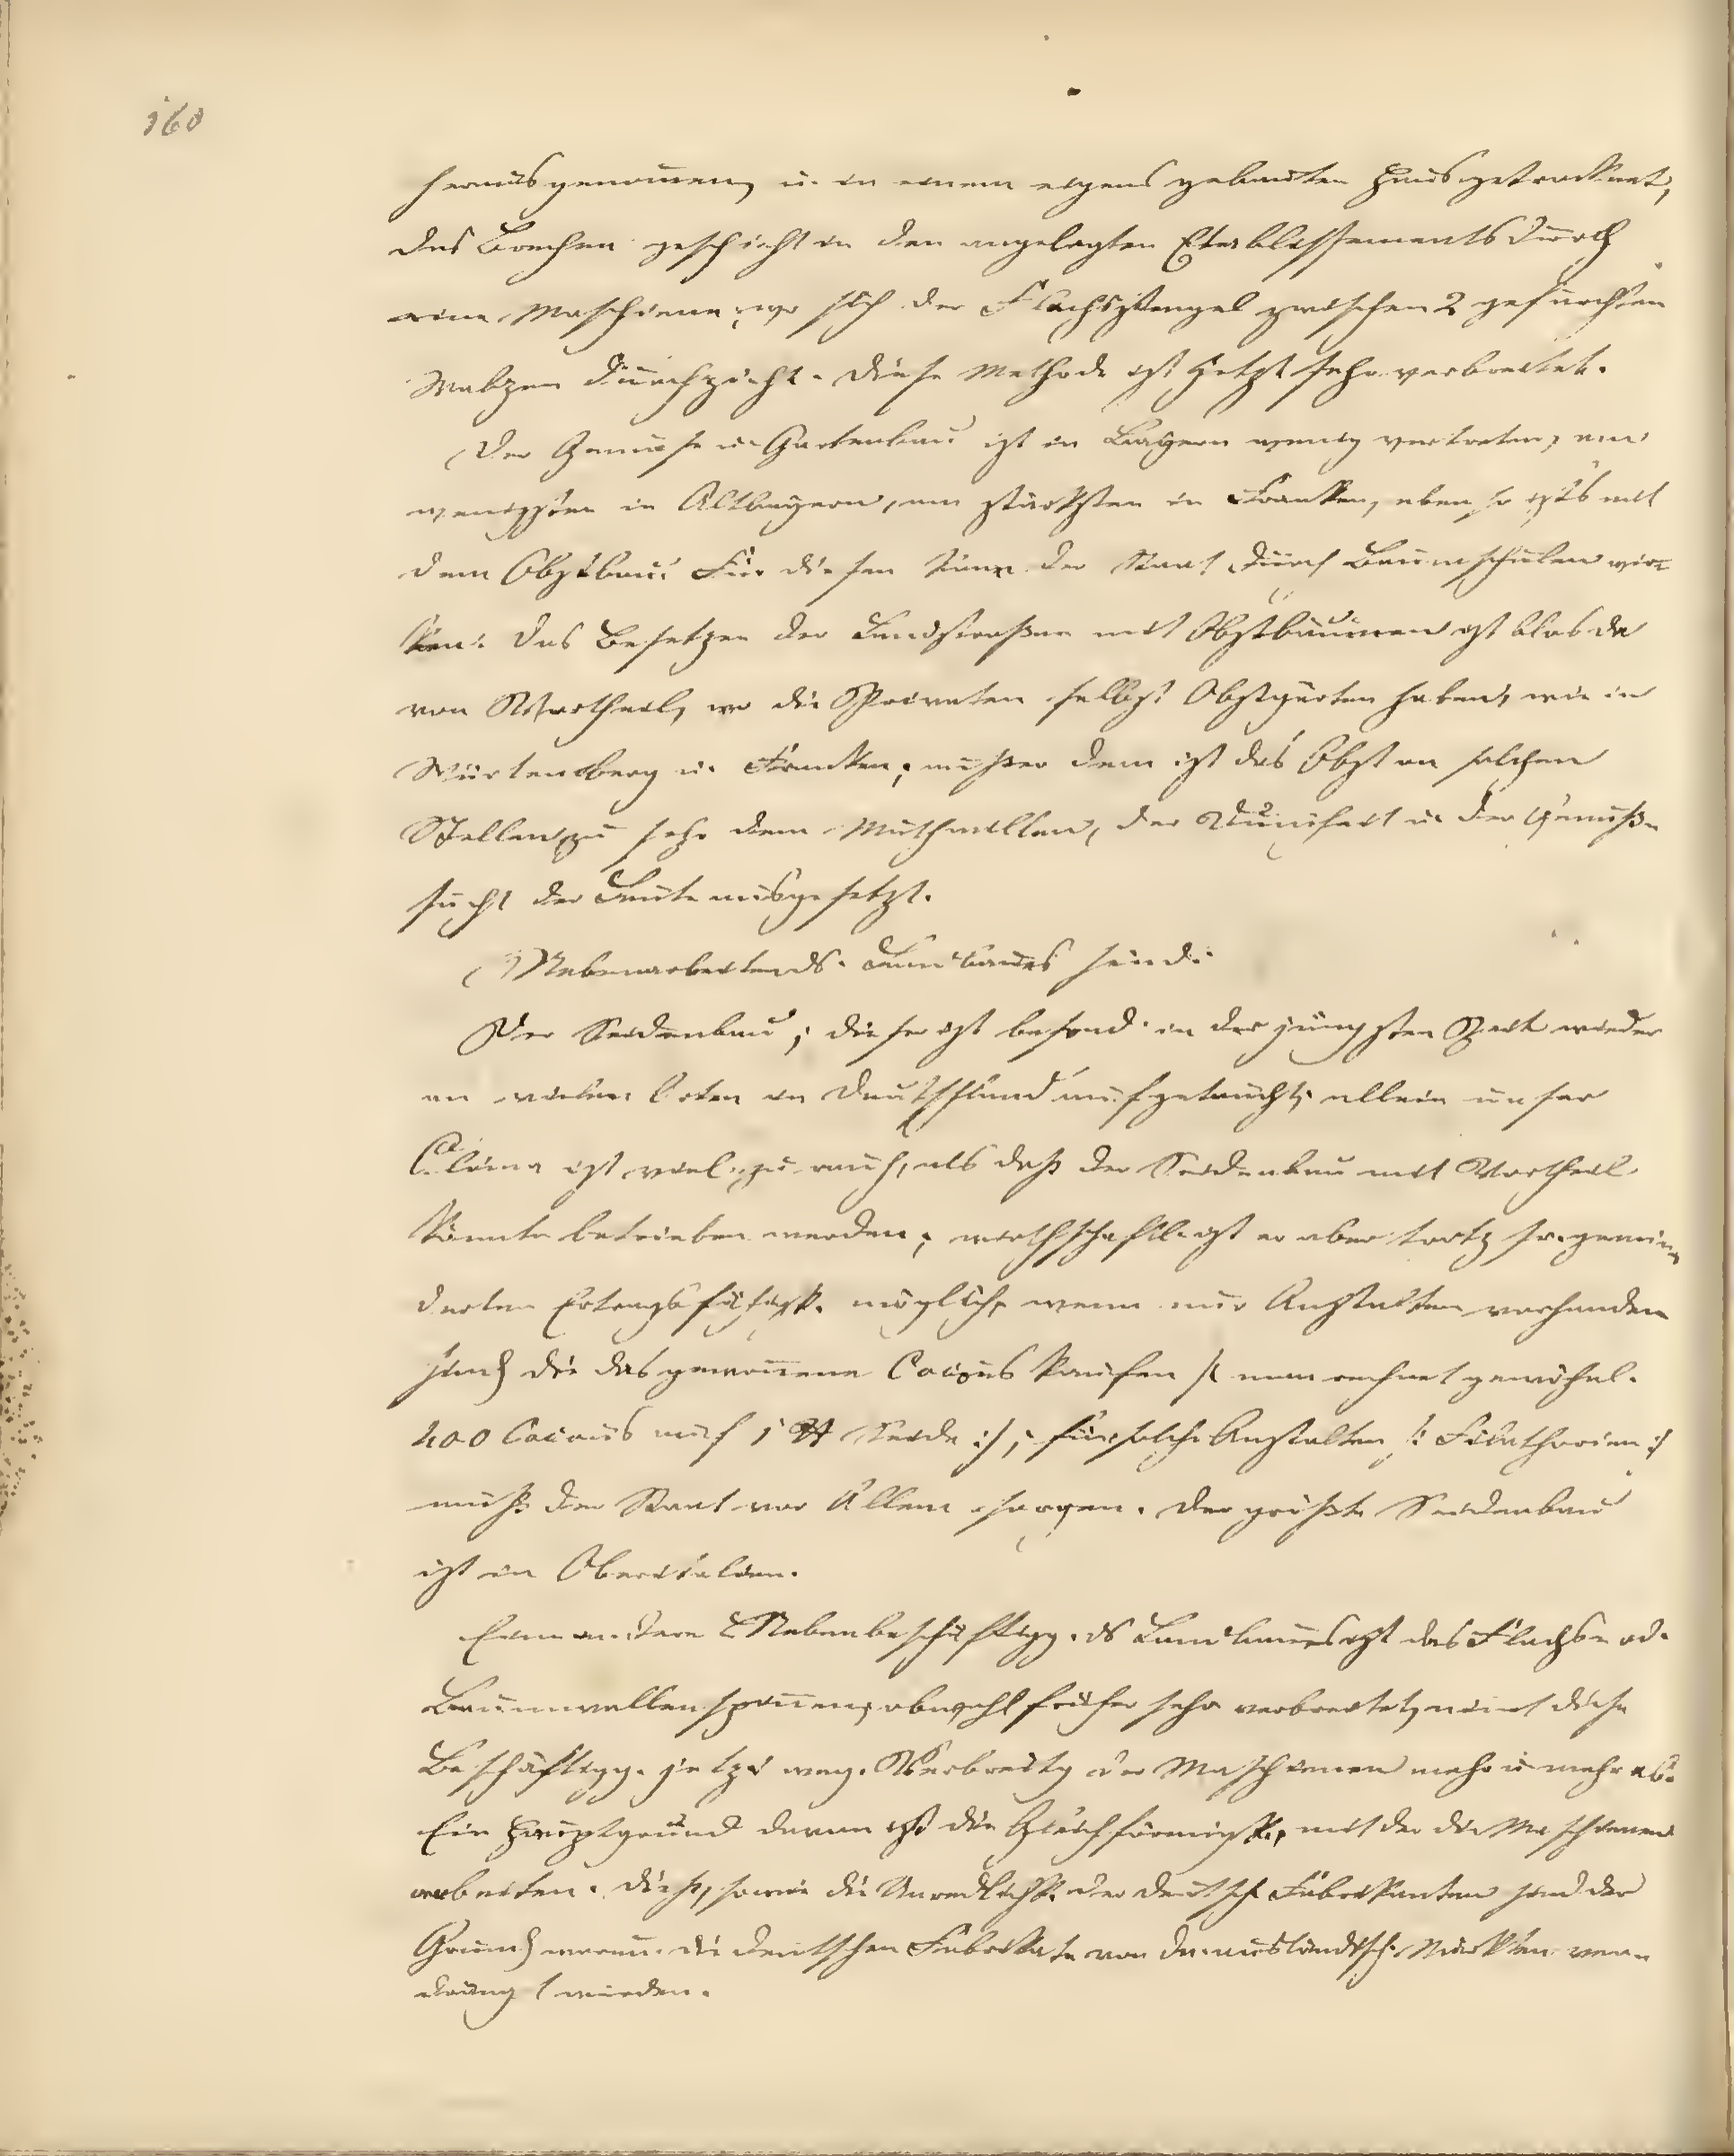 160
herausgenomen, u. in einem eigens gebauten Haus getrocknet,
das Brechen geschieht in den angelegten Etablissements durch
eine Maschiene, wo sich der Flachsstengel zwischen 2 gefurchten
Walzen durchzieht. Diese Methode ist jetzt sehr verbreitet.
Der Gemüse u. Gartenbau ist in Bayern wenig vertreten, am
wenigsten in Altbayern, am stärksten in Franken, eben so ists mit
dem Obstbau. Für diesen kann der Staat durch Baumschulen wir=
ken. Das Besetzen der Landstraßen mit Obstbäumen ist blos da
von Vortheil, wo die Privaten selbst Obstgärten haben, wie in
Würtemberg u. Franken; außer dem ist das Obst an solchen
Stellen zu sehr dem Muthwillen, der Dummheit u. der Genuß=
sucht der Leute ausgesetzt.
Nebenarbeiten ds. Landbaues seind:
Der Seidenbau; dieser ist besond. in der jüngsten Zeit wieder
an vielen Orten in Deutschland aufgetaucht; allein unser
Clima ist viel zu rauh, als daß der Seidenbau mit Vortheil
könnte betrieben werden; wirthschaftl. ist er aber trotz sr. gemin=
derten Ertragsfähigk. möglich, wenn nur Anstalten vorhanden
sind die das gewonnene Cocons kaufen /: man rechnet gewöhnl.
400 Cocons auf 1 ℔ Seide :/; für solche Anstalten /: Filathorien :/
muß der Staat vor Allem sorgen. Der größte Seidenbau
ist in Oberitalien.
Eine andere Nebenbeschäftigg. ds Landbaues ist das Flachs= od.
Baumwollenspinnen; obwohl früher sehr verbreitet, nimt diese
Beschäftigg. jetzt weg. Verbreitg der Maschienen mehr u. mehr ab.
Ein Hauptgrund davon ist die Gleichförmigk., mit der die Maschienen
arbeiten. Dieß, sowie die Unredlichk. der deutsch. Fabrikanten sind der
Grund warum die deutschen Fabrikate von den ausländisch. Märkten ver=
drängt wurden.